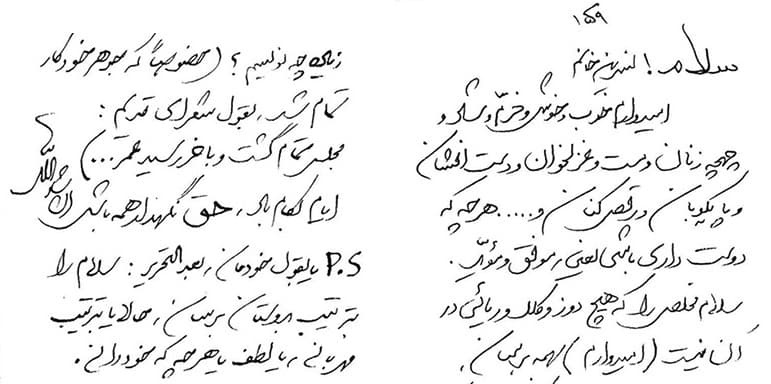 ۱۵۹
سلام! نسرین خانم
امیدوارم خوب و خوش و خرّم و شاد و
چهچه زنان و مست و غزلخوان و دست افشان
و پایکوبان و رقص کنان و ..... هرچه که
دوست داری باشی یعنی، موفق و مؤیّد.
سلام مخلصی را که هیچ دوز و کلک و ریائی در
آن نیست (امیدوارم) بهمه برسان،
زیادی چه نویسم؟ (خصوصاً که جوهر خودکار
تمام شد، بقول شعرای قدیم:
مجلس تمام گشت و باخر رسید عمر...)
ایام بکام باد، حق نگهدار همه باشد انشاءالله
P.S یا بقول خودمان، بعدالتحریر: سلام را
بترتیب بدوستان برسان، حالا یا بترتیب
مهربانی، یا لطف یا هرچه که خود دانی.